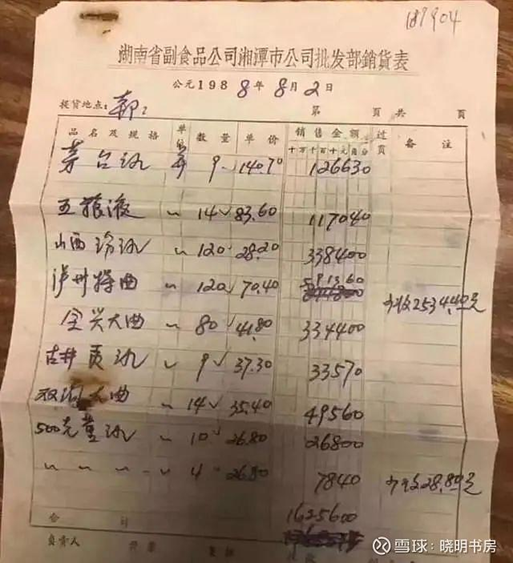 187904
湖南省副食品公司湘潭市公司批发部销货表
公元1988年8月2日
提货地点： 第 页共 页
品名及规格 单位 数量 单价 销售金额 过页 备注
十万千百十元角分
茅台酒 9 140.70 126630
五粮液 〃 14 83.60 117040
山西汾酒 〃 120 28.20 338400
泸州特曲 〃 120 70.40 591360 少收2534.40元
全兴大曲 〃 80 41.80 334400
古井贡酒 〃 9 37.30 33570
双沟大曲 〃 14 35.40 49560
500克董酒 〃 10 26.80 26800
〃 〃 〃 〃 4 26.80 7840 少收28.80元
合计 1625600
负责人 开票 复核
雪球：晓明书房